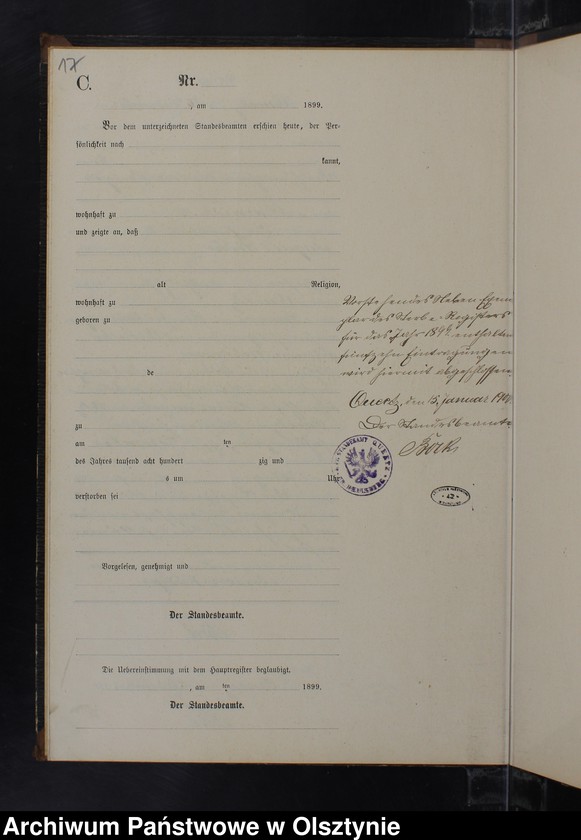 17
C.
Nr.
, am 1899.
Vor dem unterzeichneten Standesbeamten erschien heute, der Per-
sönlichkeit nach
kannt,
wohnhaft zu
und zeigte an, daß
alt Religion,
wohnhaft zu
geboren zu
de
zu
am ten
des Jahres tausend acht hundert zig und
s um Uhr
verstorben sei
Vorgelesen, genehmigt und
Der Standesbeamte.
Die Uebereinstimmung mit dem Hauptregister beglaubigt.
, am ten 1899.
Der Standesbeamte.
Vorstehendes Neben-Exem
plar des Sterbe-Registers
für das Jahr 1899 enthaltend
fünfzehn Eintragungen
wird hiermit abgeschlossen.
den Januar
Der Standesbeamte
STANDESAMT
42
Archiwum Państwowe w Olsztynie